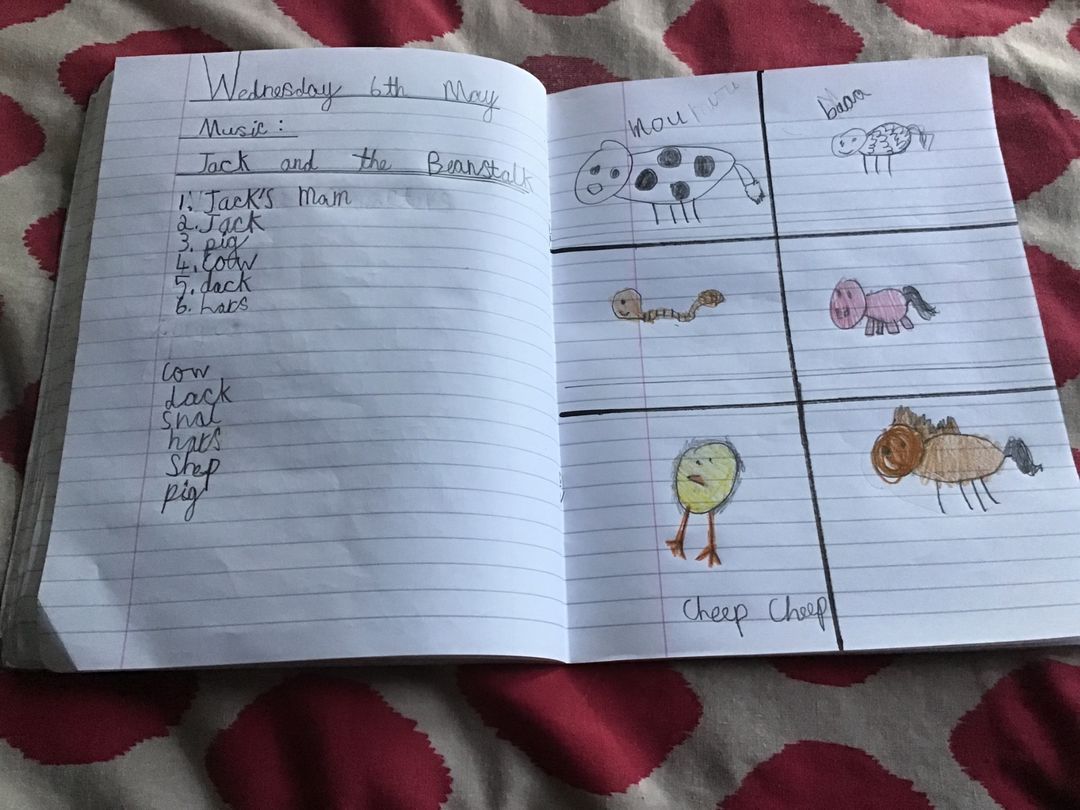 Wednesday 6th May
Music:
Jack and the Beanstalk
1. Jack's Mam
2. Jack
3. pig
4. Cow
5. dack
6. hars
cow
dack
snal
hars
Shep
pig
mou
baaa
Cheep Cheep